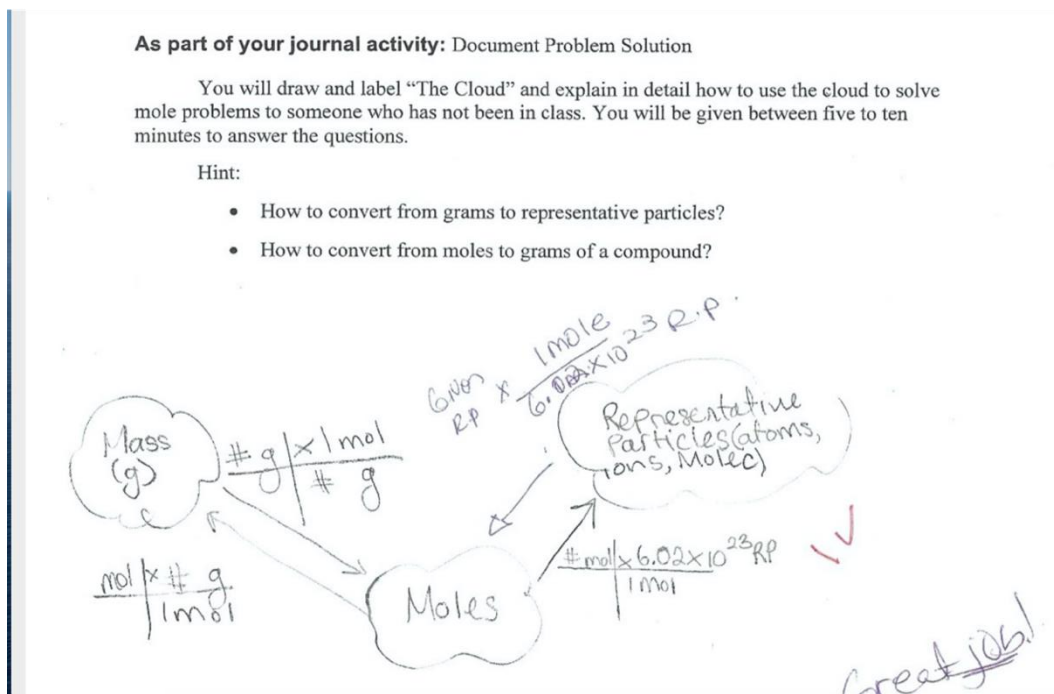 As part of your journal activity: Document Problem Solution
You will draw and label “The Cloud” and explain in detail how to use the cloud to solve
mole problems to someone who has not been in class. You will be given between five to ten
minutes to answer the questions.
Hint:
• How to convert from grams to representative particles?
• How to convert from moles to grams of a compound?
Given
RP
x
1 mole
6.02 x 10^23 R.P.
Mass
(g)
# g | x 1 mol
# g
Representative
Particles (atoms,
ions, Molec)
mol | x # g
1 mol
Moles
# mol | x 6.02 x 10^23 RP
1 mol
Great job!